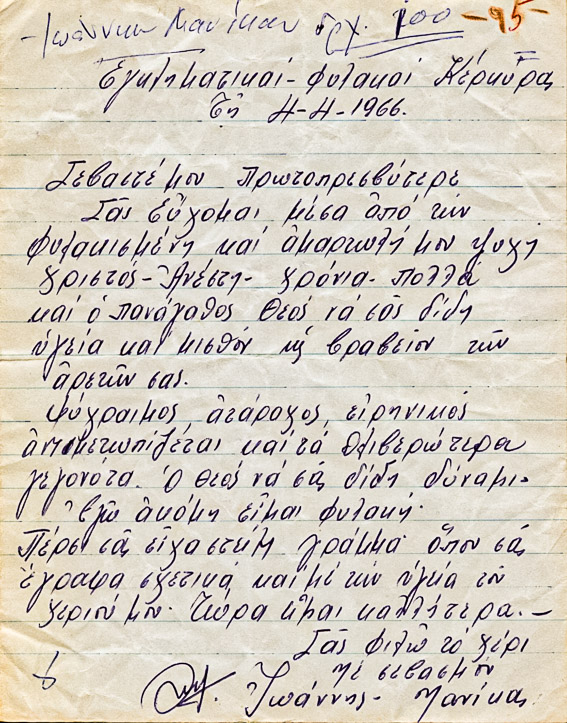 -Ἰωάννην Μανίκαν δρχ. 100 -95-
Ἐγκληματικαί - φυλακαί Κέρκυρας
Τῇ 4-4-1966.
Σεβαστέ μου Πρωτοπρεσβύτερε
Σᾶς εὔχομαι μέσα ἀπό τήν
φυλακισμένη καί ἁμαρτωλή μου ψυχή
Χριστός - Ἀνέστη - χρόνια - πολλά
καί ὁ πανάγαθος Θεός νά σᾶς δίδη
ὑγεία και μισθόν κ βραβεῖον τῶν
ἀρετῶν σας.
Ψύχραιμος ἀτάραχος, εἰρηνικός
ἀντιμετωπίζεται καί τά θλιβερώτερα
γεγονότα. Ὁ Θεός νά σᾶς δίδη δύναμι-
Ἐγώ ἀκόμη εἶμαι φυλακή.
Πέρσι σᾶς εἶχα στείλη γράμμα ὅπου σᾶς
ἔγραφα σχετικά καί μέ τήν ὑγεία τοῦ
χεριοῦ μου. Τώρα εἶμαι καλλίτερα. -
Σᾶς φιλῶ τό χέρι
Μέ σεβασμόν
Ἰωάννης - Μανίκας